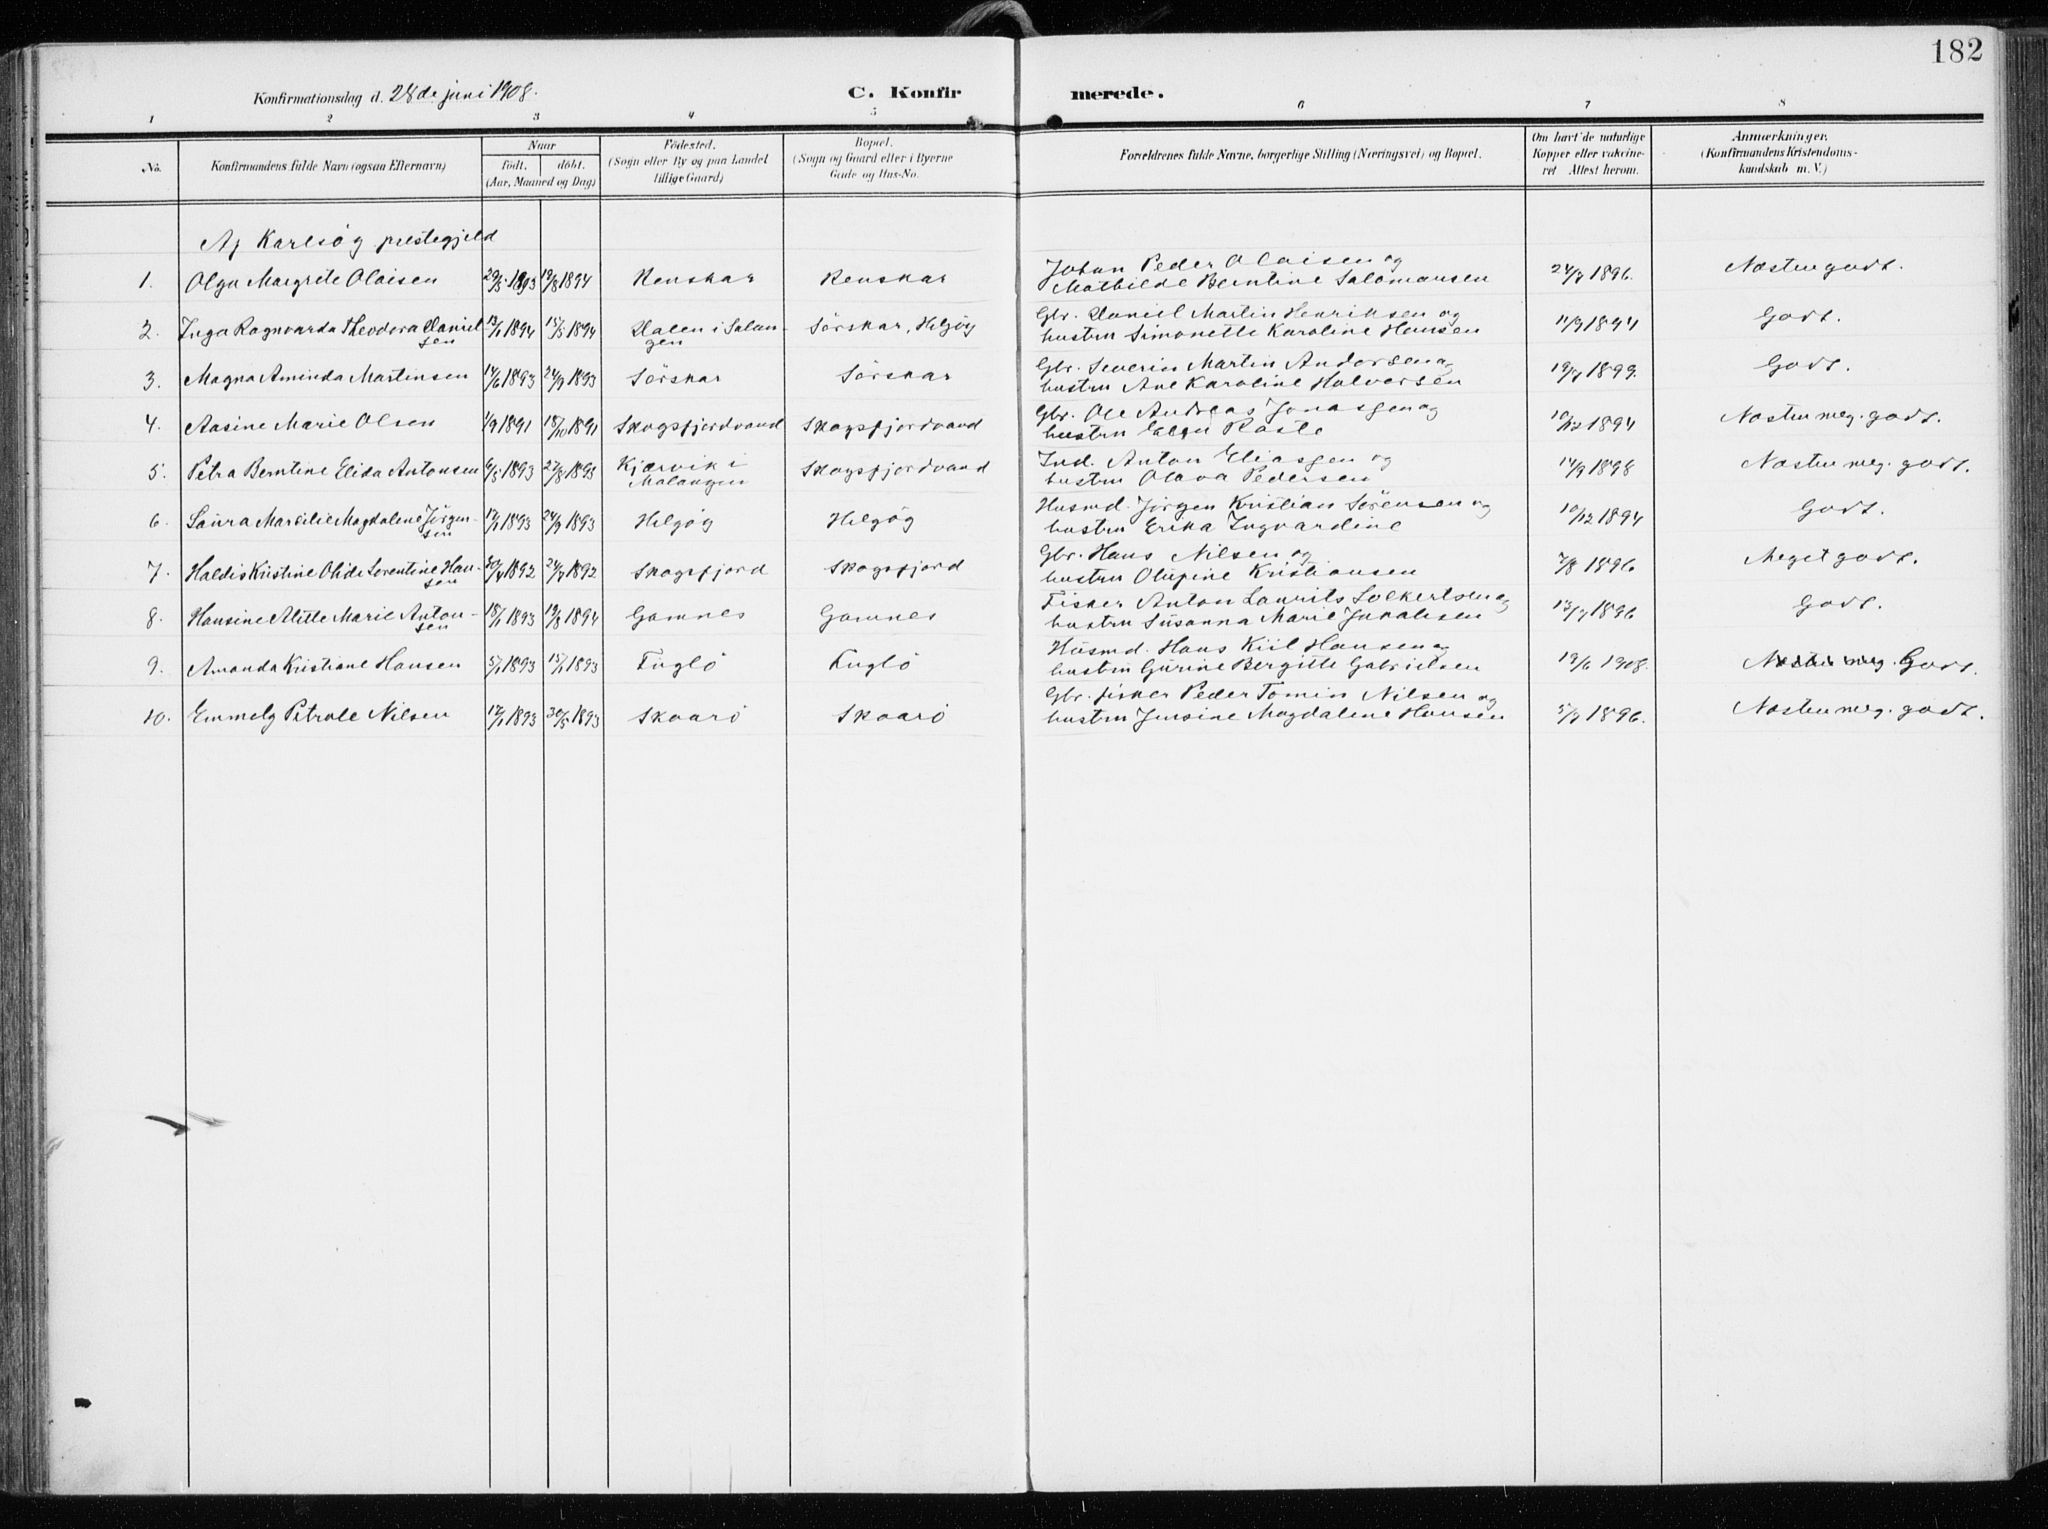 182
Konfirmationsdag d. 28de juni 1908.
C. Konfirmerede.
1 2 3 4 5 6 7 8
No.
Konfirmandens fulde Navn (ogsaa Efternavn)
Naar
født. døbt.
(Aar, Maaned og Dag)
Fødested.
(Sogn eller By og paa Landet
tillige Gaard)
Bopæl.
(Sogn og Gaard eller i Byerne
Gade og Hus-No.
Forældrenes fulde Navne, borgerlige Stilling (Næringsvei) og Bopæl.
Om havt de naturlige
Kopper eller vakcine-
ret Attest herom.
Anmærkninger.
(Konfirmandens Kristendoms-
kundskab m. V.)
Af Karlsøy prestegjeld
1. Olga Margrete Olaisen 29/5 1893 19/8 1894 Renskar Renskar Johan Peder Olaisen og
Mathilde Berntine Salamonsen 24/7 1896. Næsten godt.
2. Inga Ragnvarda Theodora Daniel-
sen 13/1 1894 15/5 1894 Dalen i Salan-
gen Sörskar, Helgöy Gbr. Daniel Martin Henriksen og
hustru Simonette Karoline Hansen 11/9 1894 Godt.
3. Magna Aminda Martinsen 14/6 1893 24/9 1893 Sörskar Sörskar Gbr. Severin Martin Andersen og
hustru Ane Karoline Halvorsen 19/7 1899. Godt.
4. Aasine Marie Olsen 1/9 1891 18/10 1891 Skogsfjordvand Skogsfjordvand Gbr. Ole Andreas Jonassen og
hustru Roste 10/12 1894 Næsten meg. godt.
5. Petra Berntine Elida Antonsen 6/5 1893 27/8 1893 Kjærvik i
Malangen Skogsfjordvand Ind. Anton Eliassen og
hustru Olava Pedersen 14/9 1898 Næsten meg. godt.
6. Laura Marcilie Magdalene Jörgen-
sen 17/7 1893 24/9 1893 Helgöy Helgöy Husmd. Jörgen Kristian Sörensen og
hustru Erika Ingvardine 10/12 1894 Godt.
7. Haldis Kristine Olide Lorentine Han-
sen 30/4 1892 24/7 1892 Skogsfjord Skogsfjord Gbr. Hans Nilsen og
hustru Olupine Kristiansen 7/8 1896 Meget godt.
8. Hansine Alitte Marie Anton-
sen 18/1 1893 19/8 1894 Gamnes Gamnes Fisker Anton Laurits Solkertsen og
hustru Susanna Marie Jakobsen 13/7 1896 Godt.
9. Amanda Kristiane Hansen 5/1 1893 15/1 1893 Fuglö Fuglö Husmd. Hans Kiil Hansen og
hustru Gurine Bergitte Gabrielsen 19/6 1908. Næsten meg. Godt.
10. Emmely Petrole Nilsen 17/1 1893 30/5 1893 Skaarö Skaarö Gbr. fisker Peder Tomin Nilsen og
hustru Jensine Magdalene Hansen 5/7 1896. Næsten meg. godt.